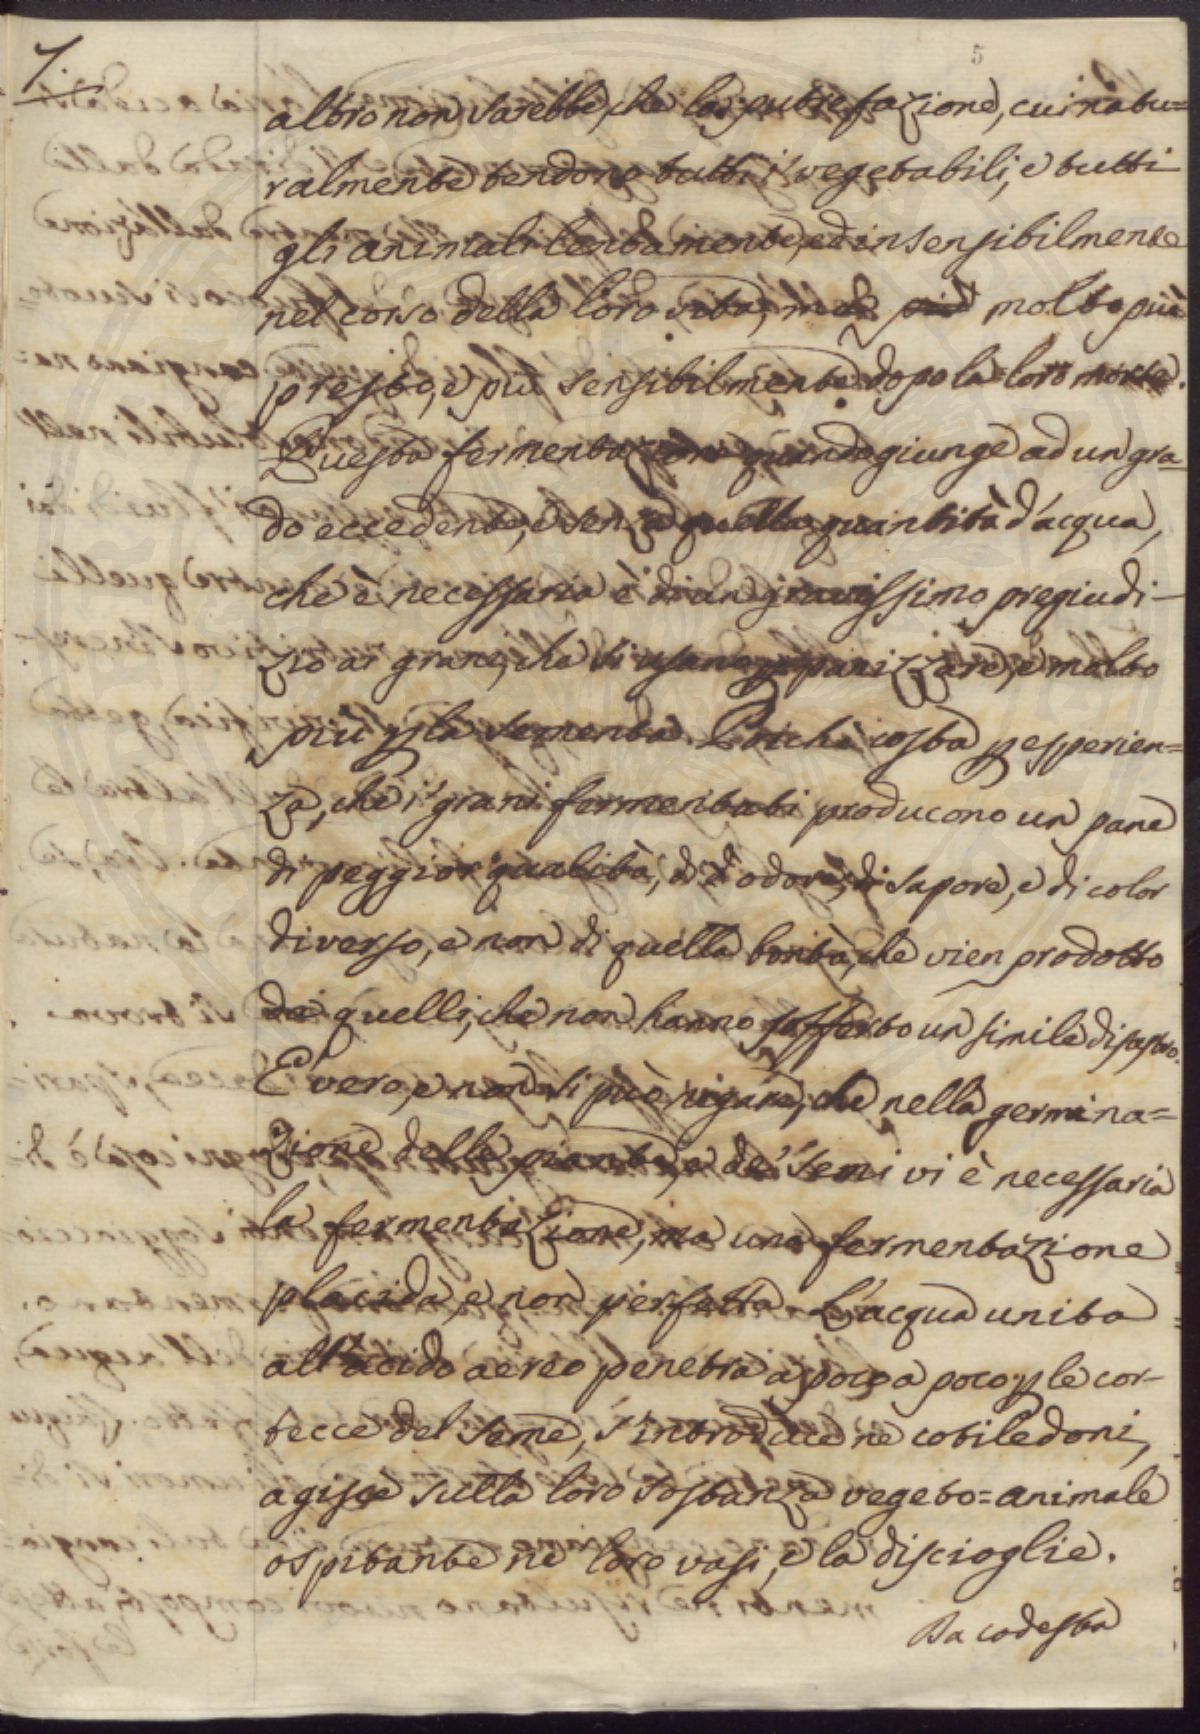 7.
5
altro non sarebbe, che la putrefazione, cui natu=
ralmente tendono tutti i vegetabili, e tutti
gli animali lentamente, ed insensibilmente
nel corso della loro vita, molto più
presto, e più sensibilmente dopo la loro morte.
Questa fermentazione quando giunge ad un gra-
do eccedente, e senza quella quantità d'acqua,
che è necessaria è di un gravissimo pregiudi-
zio ai grani, che si usano panizzare, e molto
più p la sementa. Poichè costa p esperien=
za, che i grani fermentati producono un pane
di peggior qualità, d'odore, di sapore, e di color
diverso, e non di quella bontà, che vien prodotto
da quelli, che non hanno sofferto un simile disastro.
E' vero, e non si può negare, che nella germina=
zione delle piante, e de' semi vi è necessaria
la fermentazione, ma una fermentazione
placida, e non perfetta. L'acqua unita
all'acido aereo penetra a poco a poco p le cor-
tecce del seme, s'introduce ne cotiledoni,
agisce sulla loro sostanza vegeto=animale
ospitante ne loro vasi, e la discioglie.
Da codesta